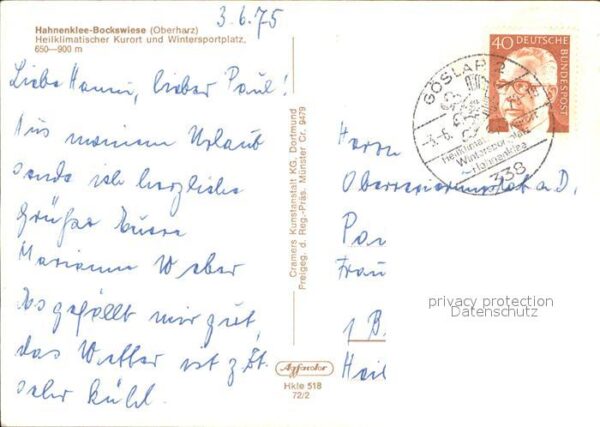 3.6.75
Hahnenklee-Bockswiese (Oberharz)
Heilklimatischer Kurort und Wintersportplatz,
650—900 m
Liebe Hanni, lieber Paul!
Aus meinem Urlaub
sende ich herzliche
Grüße Euere
Marianne Weber
Es gefällt mir gut,
das Wetter ist z.Zt.
sehr kühl.
Cramers Kunstanstalt KG, Dortmund
Freigeg. d. Reg.-Präs. Münster Cr. 9479
Agfacolor
Hkle 518
72/2
40 DEUTSCHE
BUNDESPOST
GOSLAR 2
Wintersport
Hahnenklee
338
Herrn
a.D.
Frau
privacy protection
Datenschutz
1 B